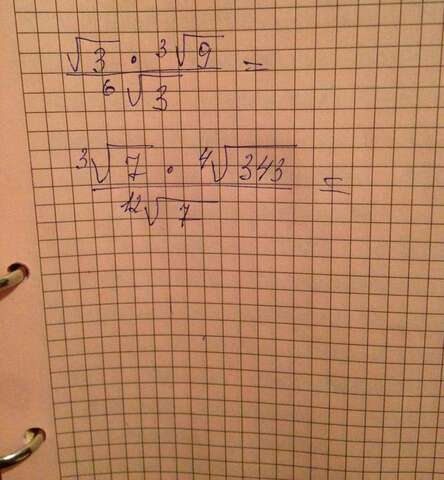 √3 · ³√9 / ⁶√3 =
³√7 · ⁴√343 / ¹²√7 =